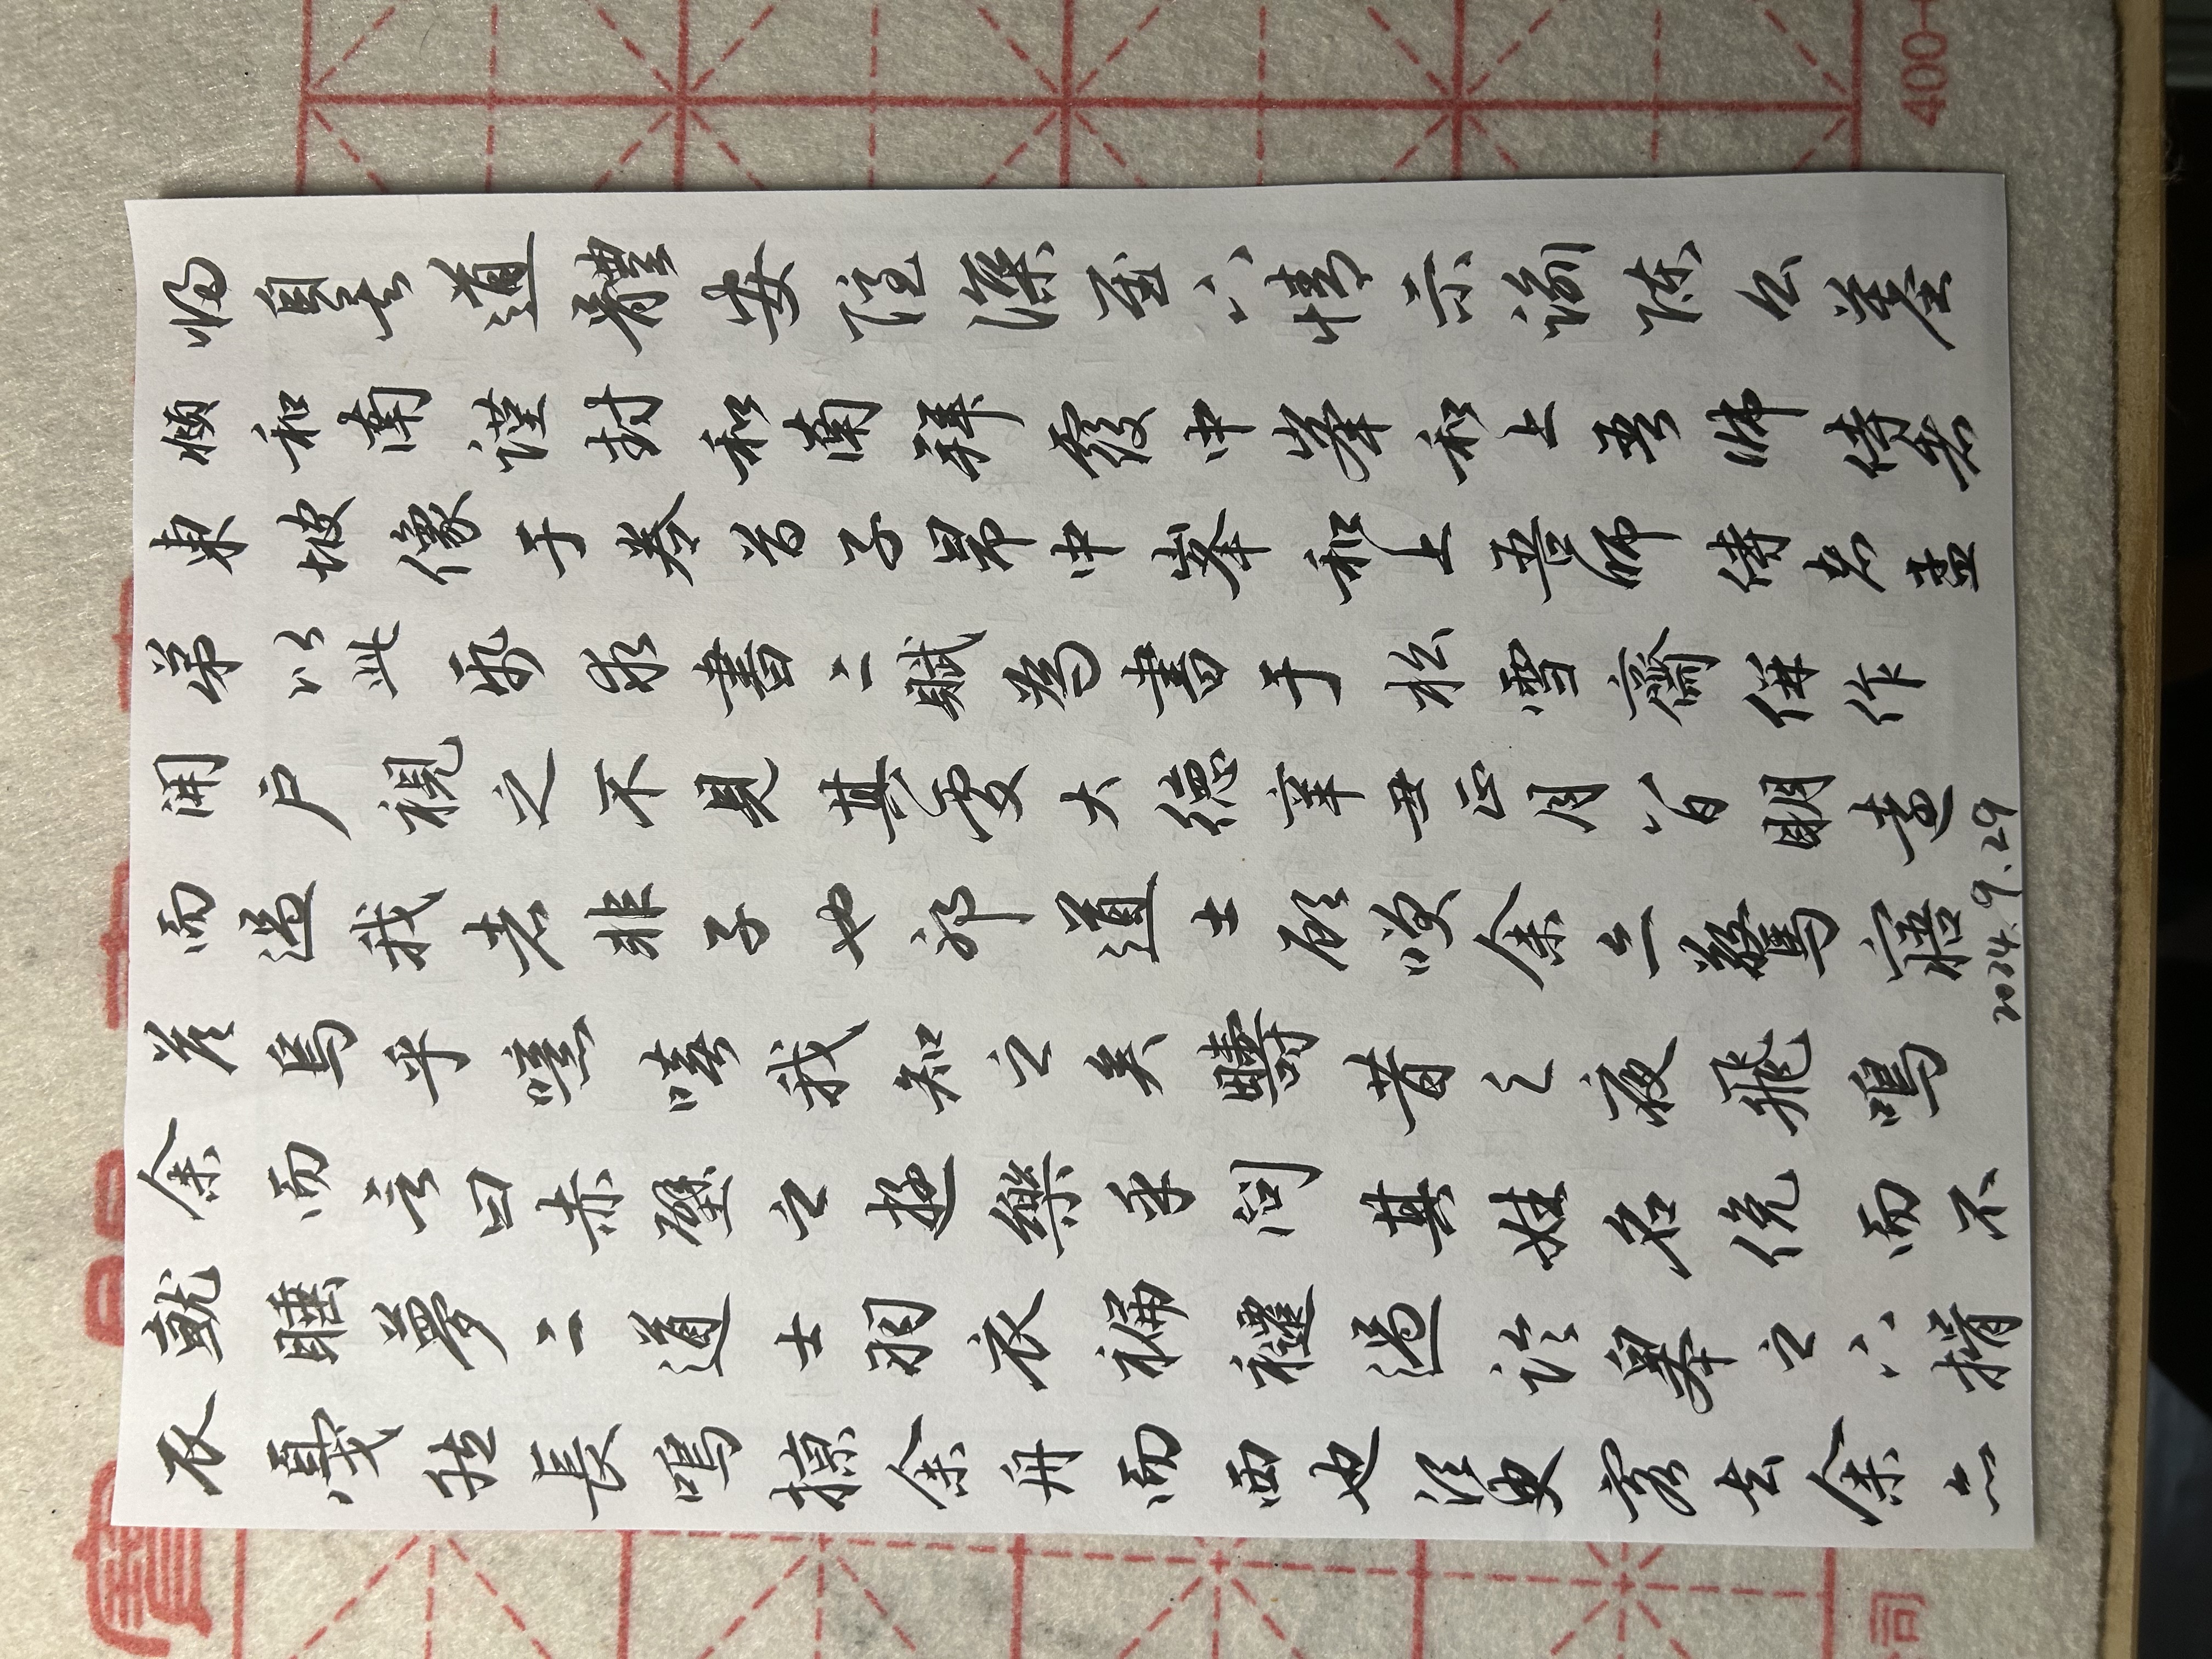 歸自吴道體安隱深至下情示諭陳公墓
頫和南謹封和南拜覆中峯和上吾師侍者
東坡像于卷首子昂中峯和上吾師侍者孟
弟以此紙求書二賦為書于松雪齋併作
開户視之不見其處大德辛丑正月八日明遠
而過我者非子也邪道士顧唉余亦驚寤
答烏乎噫嘻我知之矣疇昔之夜飛鳴
余而言曰赤壁之遊樂乎問其姓名俛而不
就睡夢二道士羽衣褊褼過臨皋之下揖
衣戛然長鳴掠余舟而西也須臾客去余亦
2024.9.29
司
400-